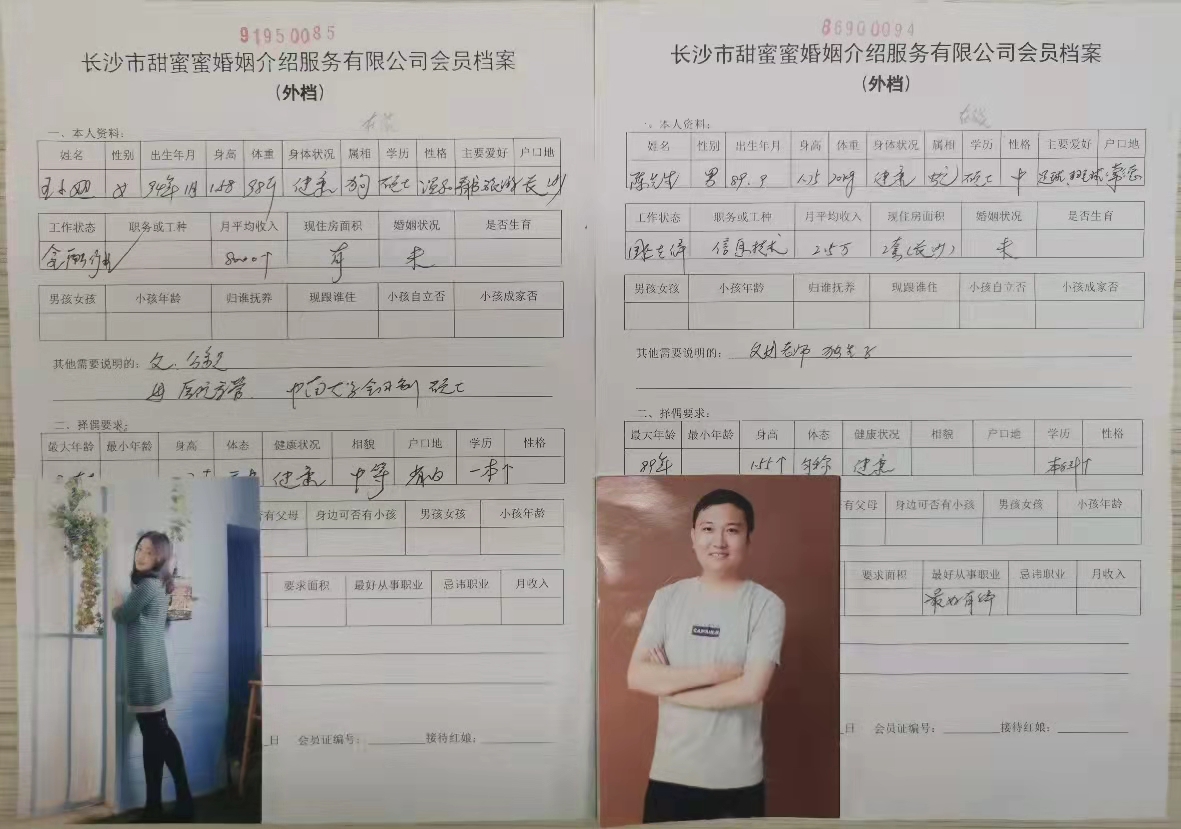 91950085
长沙市甜蜜蜜婚姻介绍服务有限公司会员档案
(外档)
一、本人资料:
姓名 性别 出生年月 身高 体重 身体状况 属相 学历 性格 主要爱好 户口地
王小姐 女 94年 1.58 98斤 健康 狗 硕士 温和 旅游 长沙
工作状态 职务或工种 月平均收入 现住房面积 婚姻状况 是否生育
金融行业 8000个 有 未
男孩女孩 小孩年龄 归谁抚养 现跟谁住 小孩自立否 小孩成家否
其他需要说明的: 父. 公务员
母 医院 中南大学 硕士
二、择偶要求:
最大年龄 最小年龄 身高 体态 健康状况 相貌 户口地 学历 性格
健康 中等 省内 一本个
有父母 身边可否有小孩 男孩女孩 小孩年龄
要求面积 最好从事职业 忌讳职业 月收入
日 会员证编号: 接待红娘:
86900094
长沙市甜蜜蜜婚姻介绍服务有限公司会员档案
(外档)
一、本人资料:
姓名 性别 出生年月 身高 体重 身体状况 属相 学历 性格 主要爱好 户口地
陈先生 男 89.9 1.75 健康 蛇 硕士 中 足球
工作状态 职务或工种 月平均收入 现住房面积 婚姻状况 是否生育
信息技术 25万 2套(长沙) 未
男孩女孩 小孩年龄 归谁抚养 现跟谁住 小孩自立否 小孩成家否
其他需要说明的: 父母老师 独生子
二、择偶要求:
最大年龄 最小年龄 身高 体态 健康状况 相貌 户口地 学历 性格
89年 1.55个 匀称 健康 本科个
有父母 身边可否有小孩 男孩女孩 小孩年龄
要求面积 最好从事职业 忌讳职业 月收入
最好有编
日 会员证编号: 接待红娘: